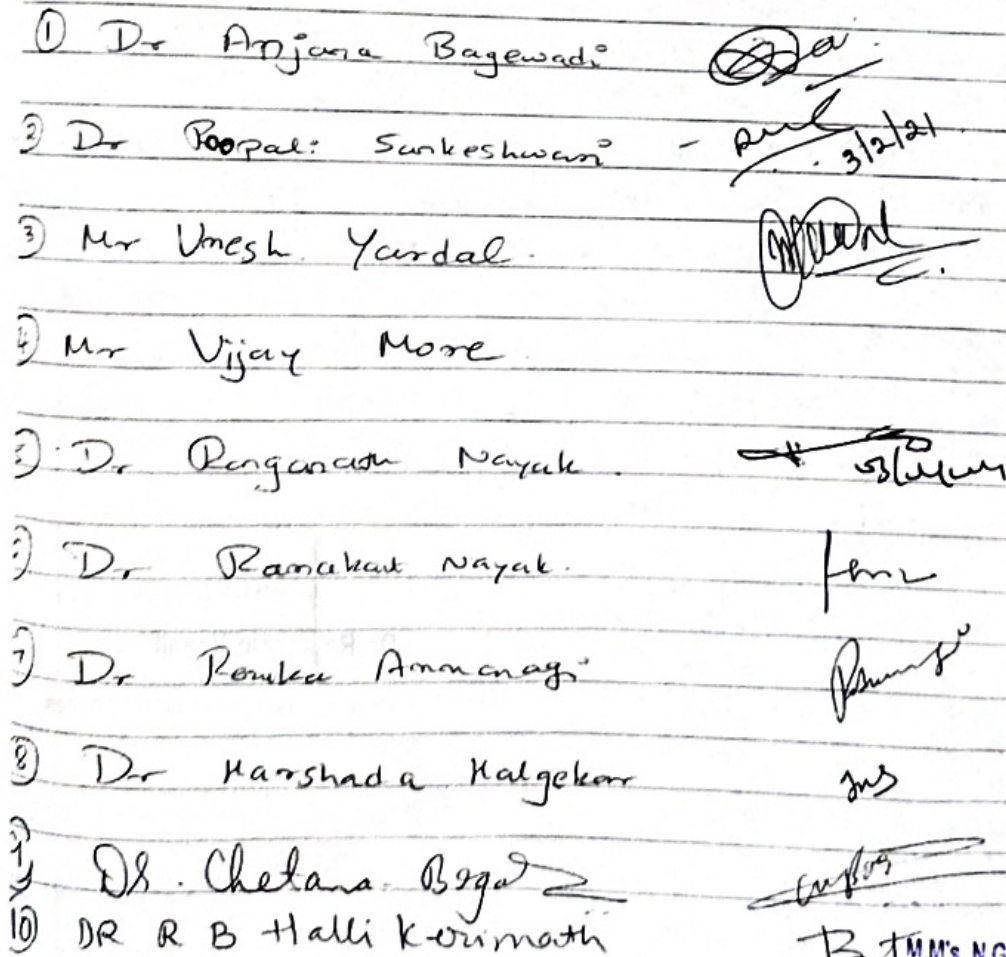 ① Dr Anjana Bagewadi
② Dr Roopali Sankeshwari - 3/2/21
③ Mr Umesh Yardal.
④ Mr Vijay More
⑤ Dr Ranganath Nayak.
Dr Ramakant Nayak.
7) Dr Renuka Ammanagi
⑧ Dr Harshada Halgekar
Dr. Chetana
⑩ DR R B Halli Kerimath
MM's NG